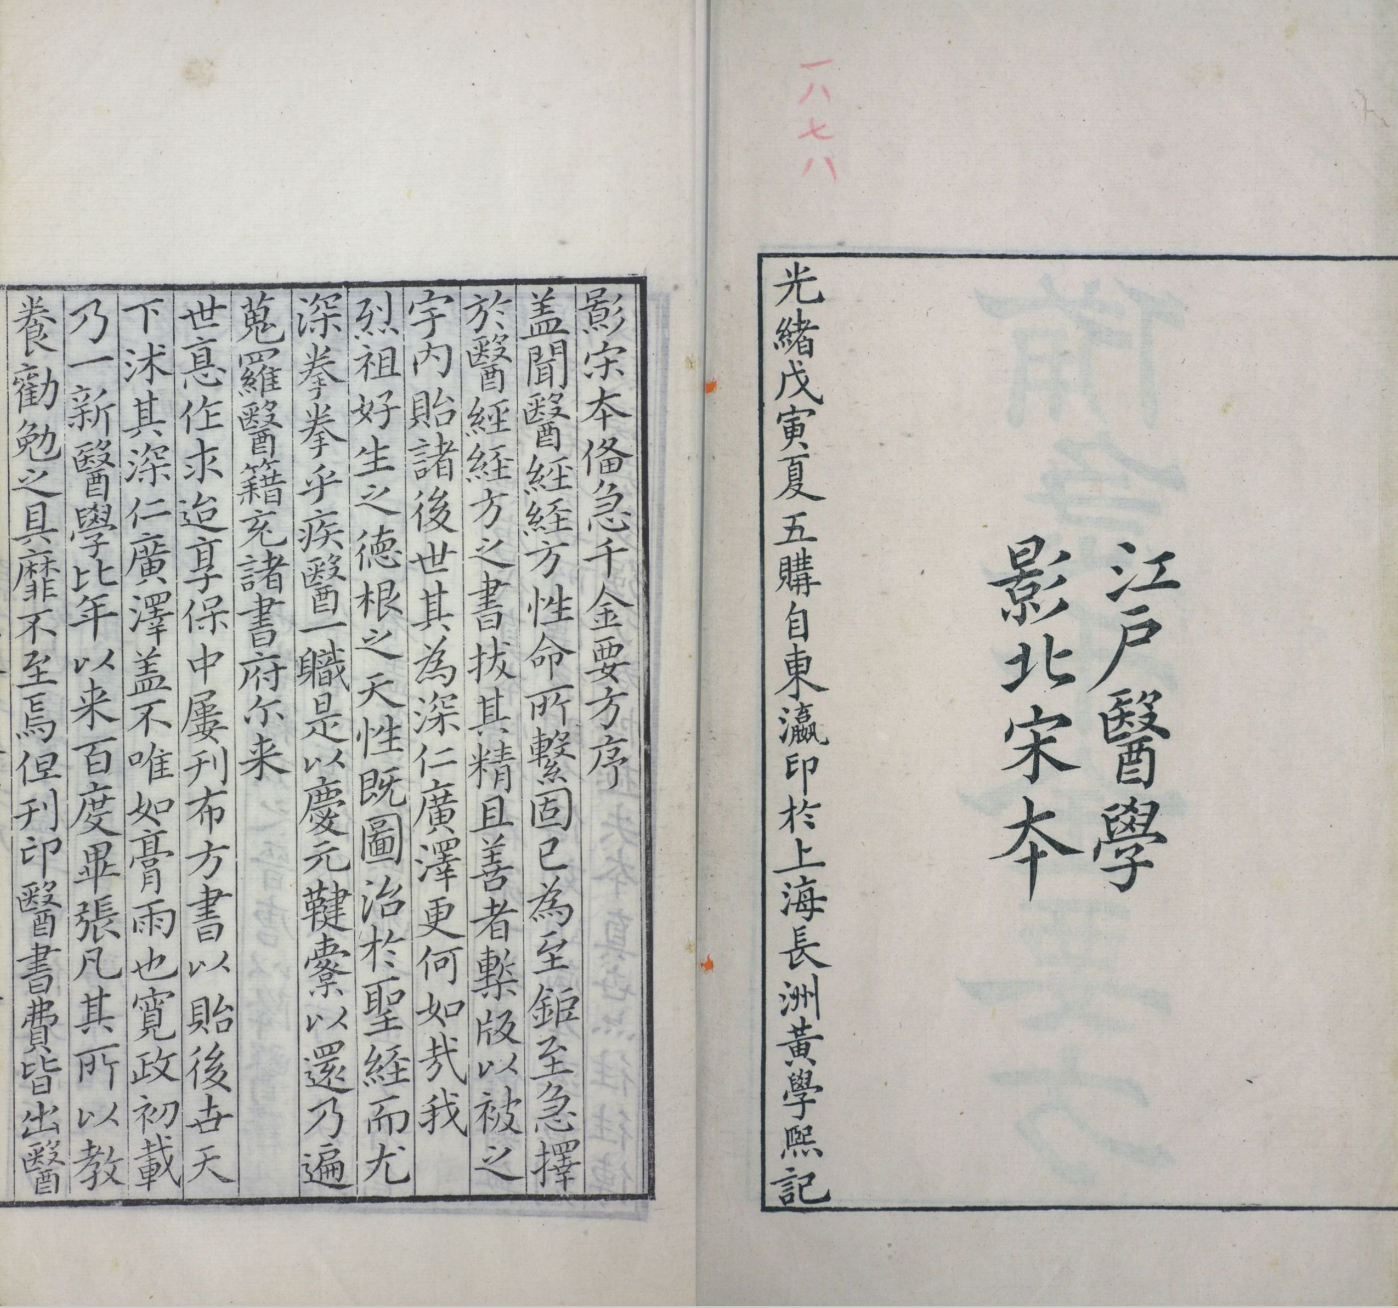 一八七八
江戶醫學
影北宋本
光緒戊寅夏五購自東瀛印於上海長洲黃學熙記
影宋本俻急千金要方序
盖聞醫經經方性命所繫固已為至鉅至急擇
於醫經經方之書拔其精且善者槧版以被之
宇内貽諸後世其為深仁廣澤更何如㢤我
烈祖好生之德根之天性既圖治於聖經而尤
深拳拳乎疾醫一職是以慶元鞬櫜以還乃遍
蒐羅醫籍充諸書府尔来
世悳作求迨享保中屢刊布方書以貽後世天
下沭其深仁廣澤盖不唯如膏雨也寛政初載
乃一新醫學比年以来百度畢張凡其所以教
養勸勉之具靡不至焉但刊印醫書費皆出醫